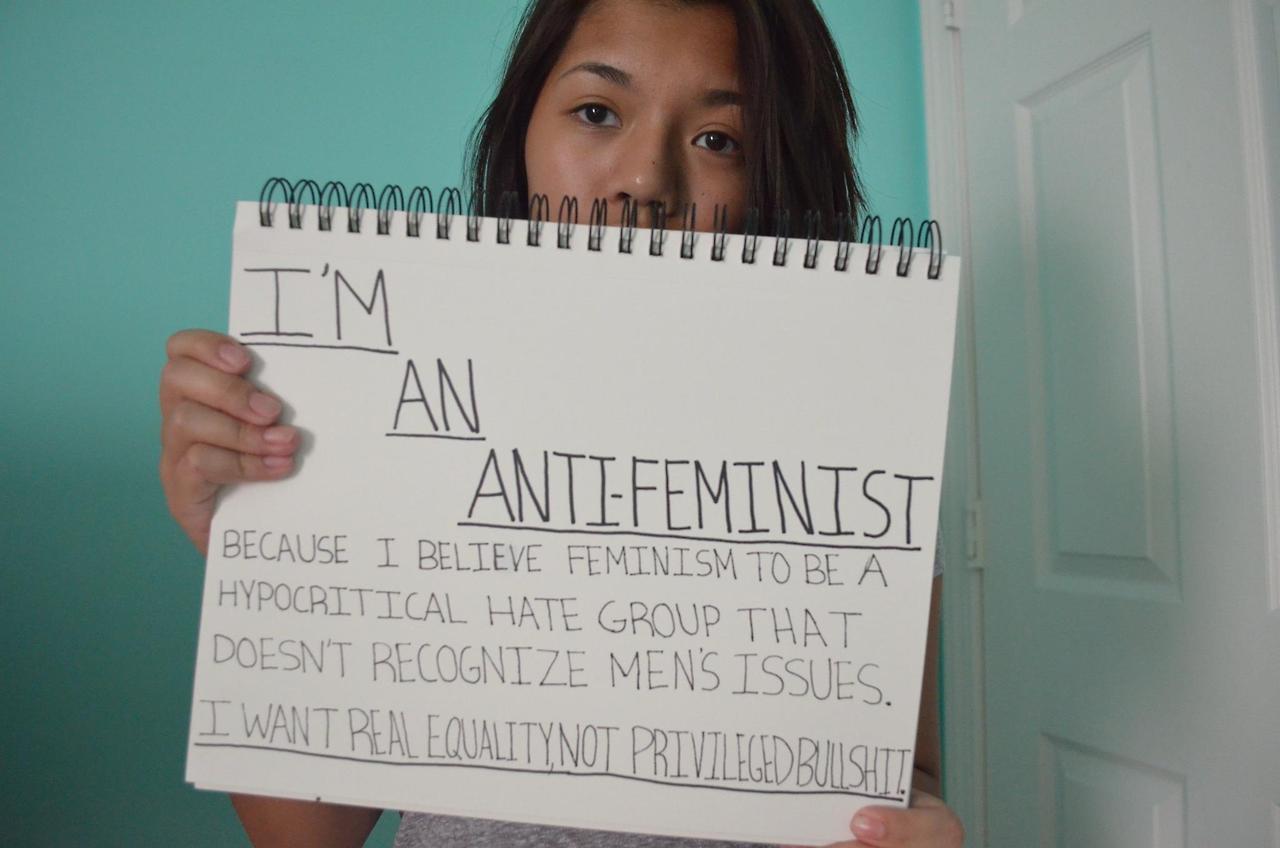 I'M
AN
ANTI-FEMINIST
BECAUSE I BELIEVE FEMINISM TO BE A
HYPOCRITICAL HATE GROUP THAT
DOESN'T RECOGNIZE MEN'S ISSUES.
I WANT REAL EQUALITY, NOT PRIVILEGED BULLSHIT.